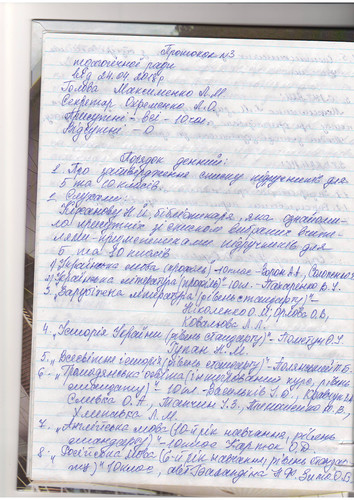 Протокол №3
педагогічної ради
від 24.04.2018р
Голова Максименко Л.М.
Секретар Охріменко А.О.
Присутні - всі - 10 чол.
Відсутні - 0
Порядок денний:
1. Про затвердження списку підручників для
5 та 10 класів.
2. Слухали:
Н.Й, бібліотекаря, яка ознайоми-
ла присутніх зі списком вибраних вчите-
лями-предметниками підручників для
5 та 10 класів
1) Українська мова - 10 клас -
2. Українська література - 10 кл. -
3. Зарубіжна література (рівень стандарту) -
Ніколенко О.М, Орлова О.В,
Ковальова Л.Л.
4. "Історія України (рівень стандарту)" -
Гупан Н.М.
5. "Всесвітня історія (рівень стандарту)" -
6. "Громадянська освіта (інтегрований курс, рівень
стандарту)" - 10 кл - Васильків І.Д,
О.А, Танчин І.З,
Л.М.
7. "Англійська мова (10 й рік навчання, рівень
стандарту)" - 10 клас Карпюк О.Д.
8. мова (6-й рік навчання, рівень стандар
ту)" 10 клас, авт